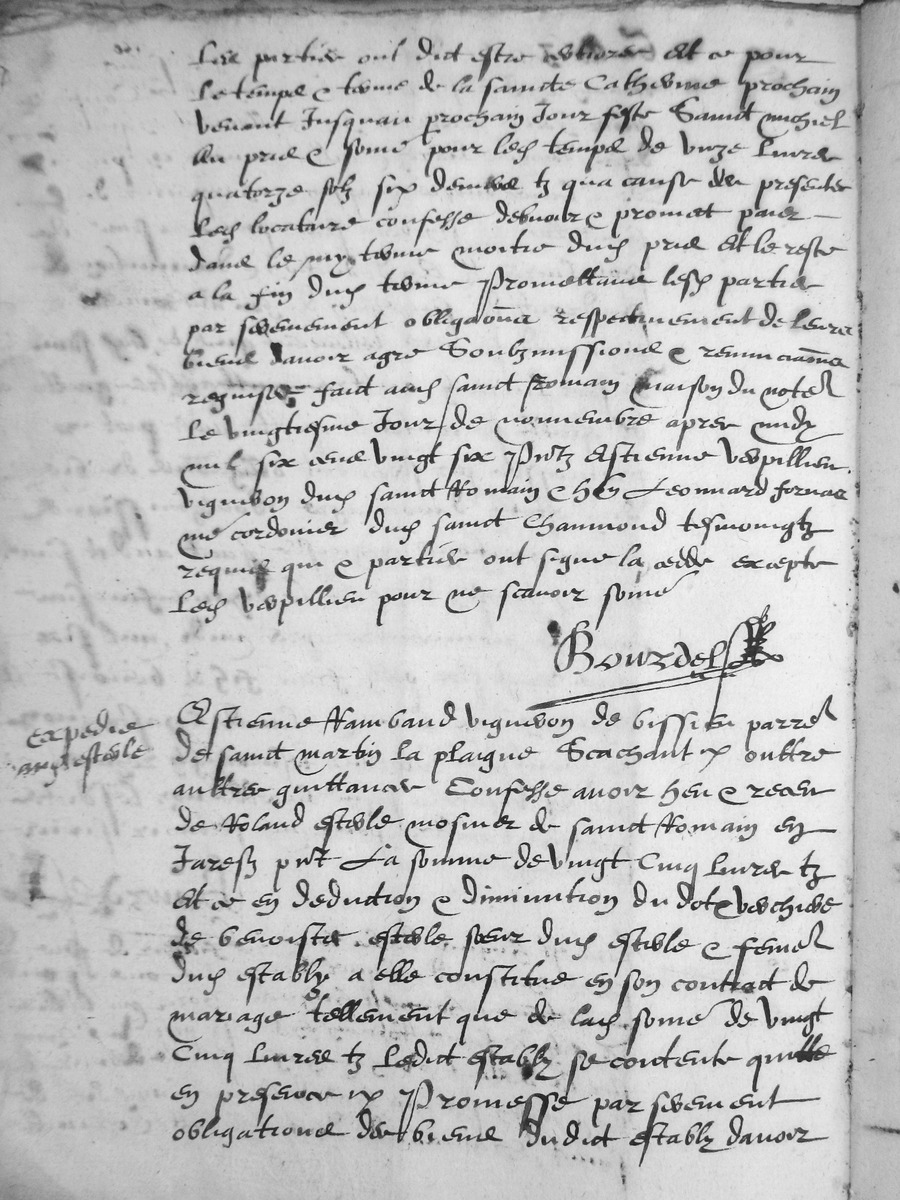 Les parties ont dict estre encores Et ce pour
Le temps & terme de la saincte Catherine prochain
venant Jusquau prochain Jour feste Sainct michiel
Au pris & some pour lesd temps de unze livres
quatorze solz six deniers tz qua cause des presentes
Led locataire confesse debvoir & promet paier
dans le my terme moitie dud pris Et le reste
a la fin dud terme Promettans lesd parties
par serement obligaons respectivement de leurs
biens davoir agre Soubzmissions & renunciaons
requises faict aud sainct Romain maison du note
Le vingtiesme Jour de novembre apres midy
mil six cens vingt six Pntz Estienne verpillieu
vigneron dud sainct Romain & hon Leonnard fornas
me cordonier dud sainct Chaumond tesmoingtz
requis qui & parties ont signe la cedde excepte
Led verpillieu pour ne scavoir some
Bourdel
expedie
aud esterle
Estienne Rambaud vigneron de bissieu parre
de sainct martin la plaigne Scachant & oultre
aultres quittances Confesse avoir heu & receu
de Roland esterle mosnier de sainct Romain en
Jarestz pnt La somme de vingt Cinq livres tz
Et ce en deduction & diminution du dot & verchiere
de benoiste esterle soeur dud esterle & feme
dud estably a elle constitue en son contract de
mariage tellement que de lad some de vingt
Cinq livres tz Ledict estably se contente quitte
en presence & Promesse par serement
obligations des biens dudict estably davoir